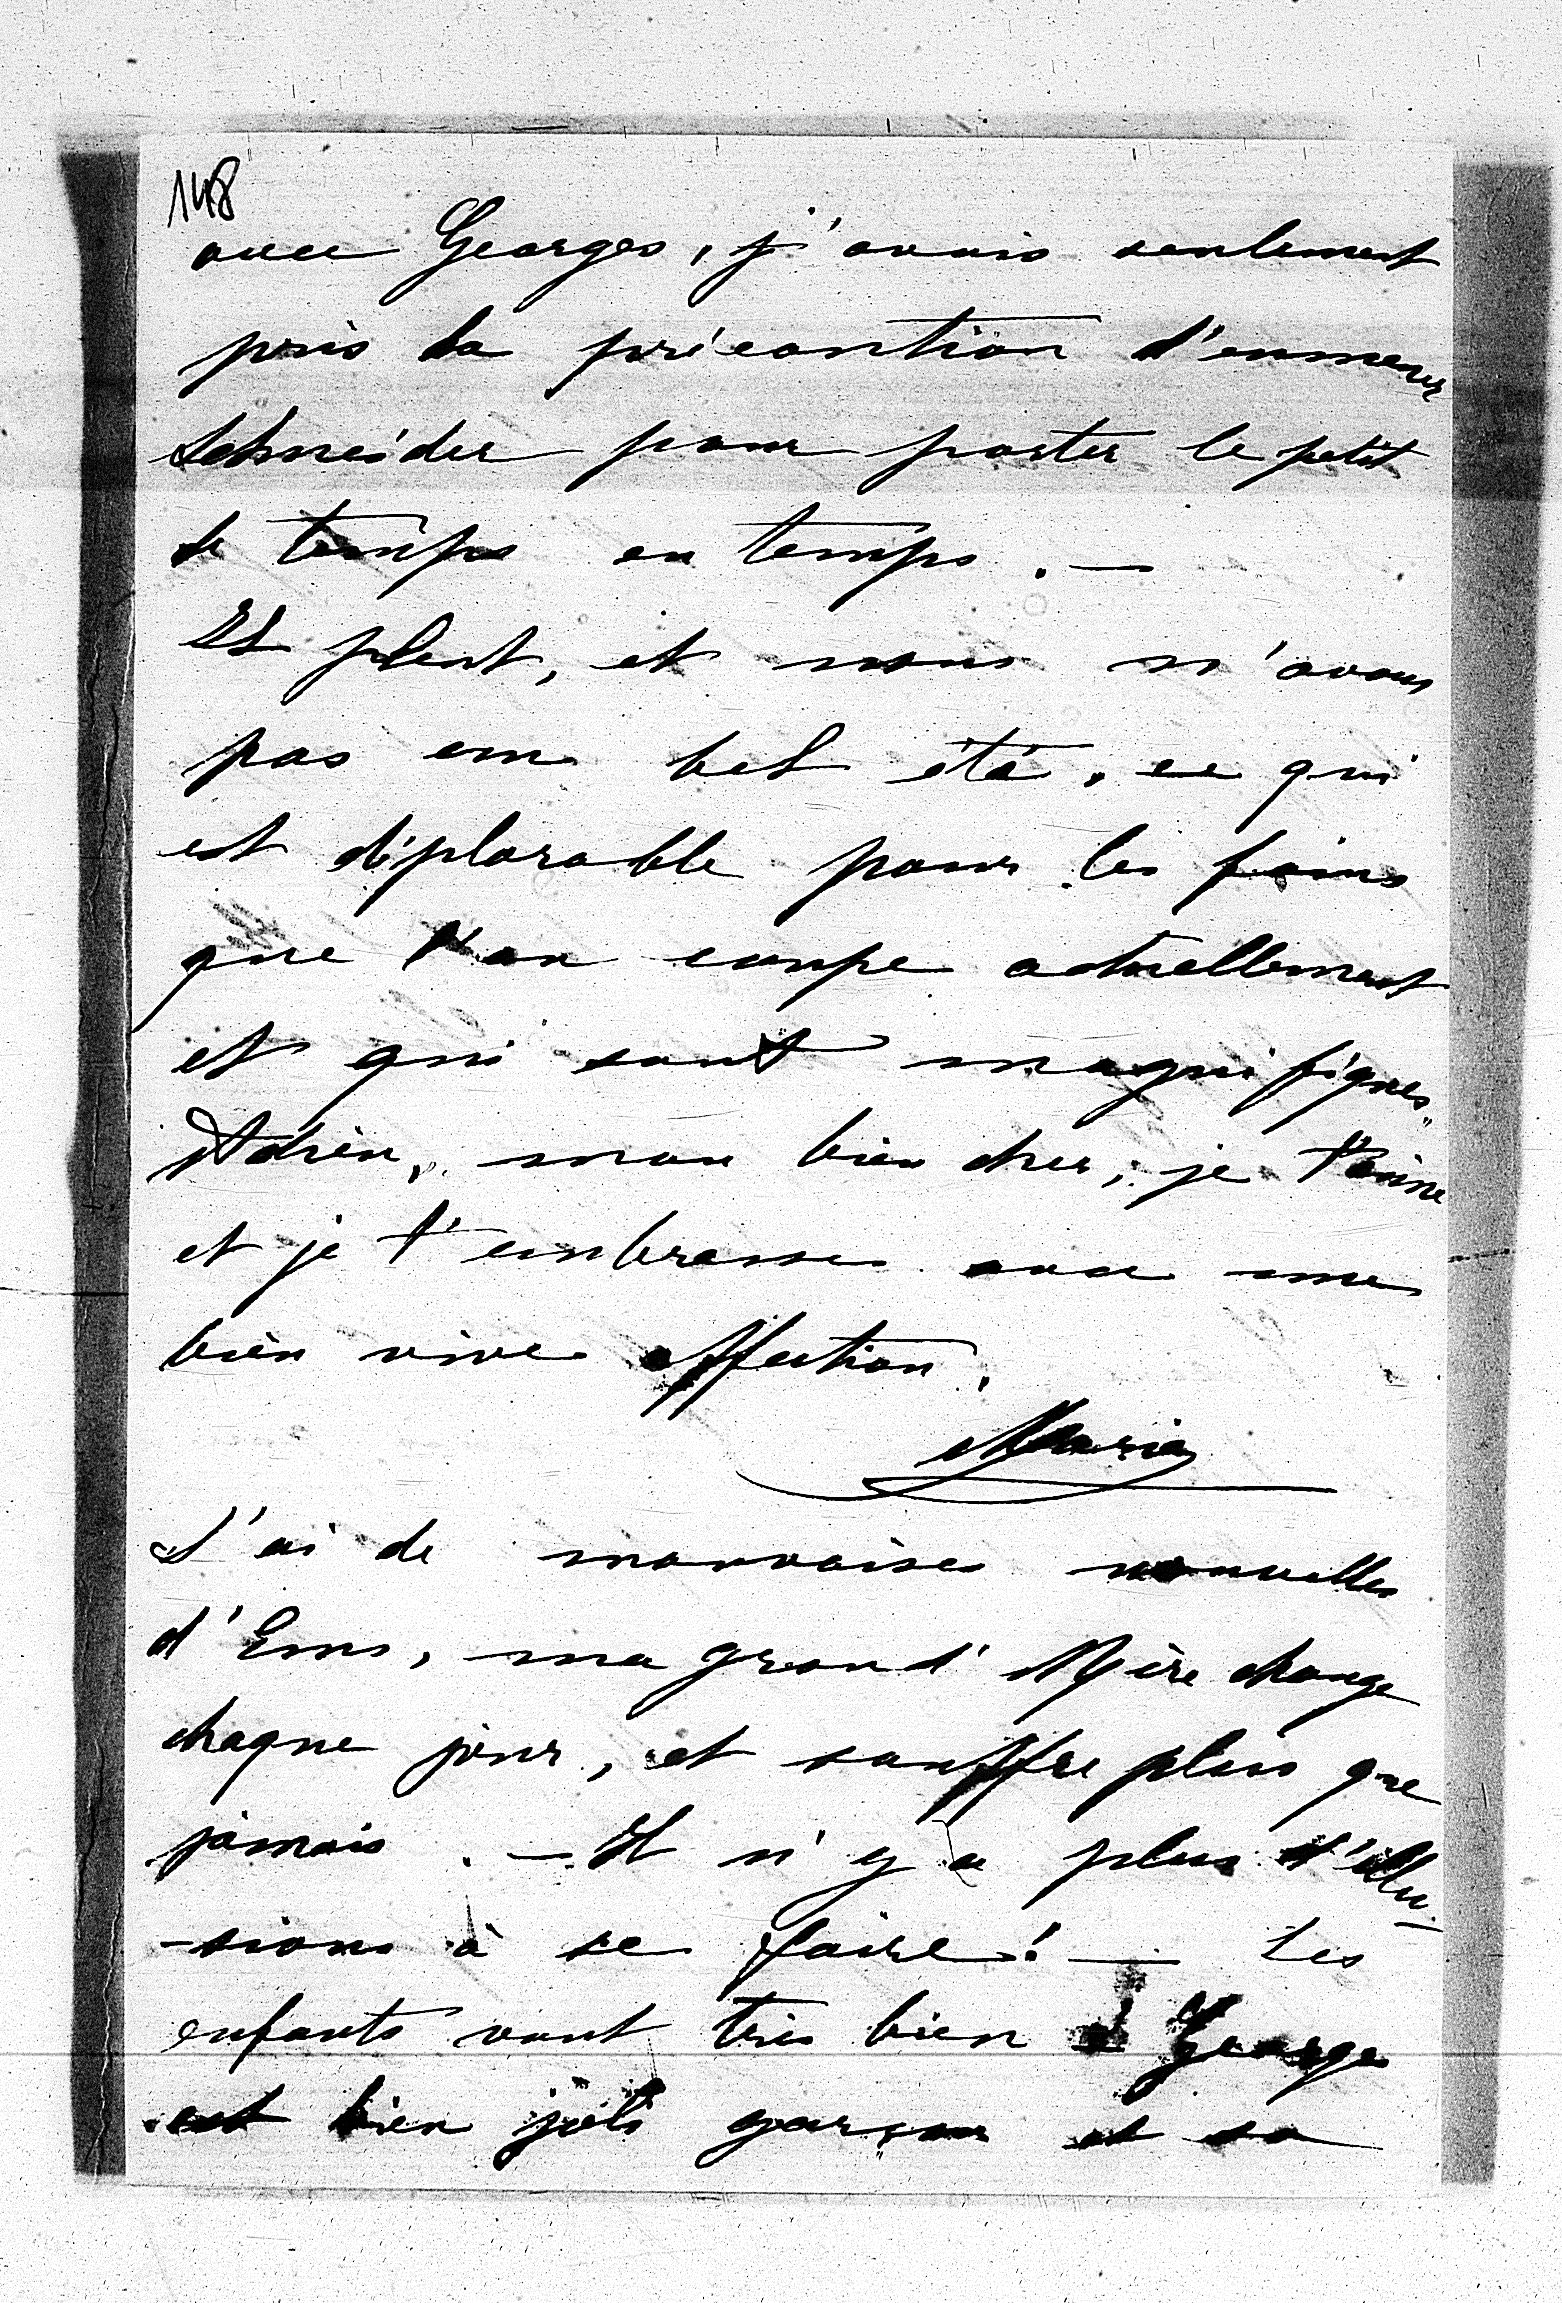 148
avec Georges, j'avais seulement
pris la précaution d'emmener
Schneider pour porter le petit
de temps en temps. —
Il pleut, et nous n'avons
pas un bel été, ce qui
est déplorable pour les foins
que l'on coupe actuellement
et qui sont magnifiques.
Adrien, mon bien cher, je t'aime
et je t'embrasse avec une
bien vive affection.
Marie
J'ai de mauvaises nouvelles
d'Ems, ma grand'Mère change
chaque jour, et souffre plus que
jamais. — Il n'y a plus d'illu-
-sions à se faire! — Les
enfants vont très bien Georges
est bien joli garçon et sa